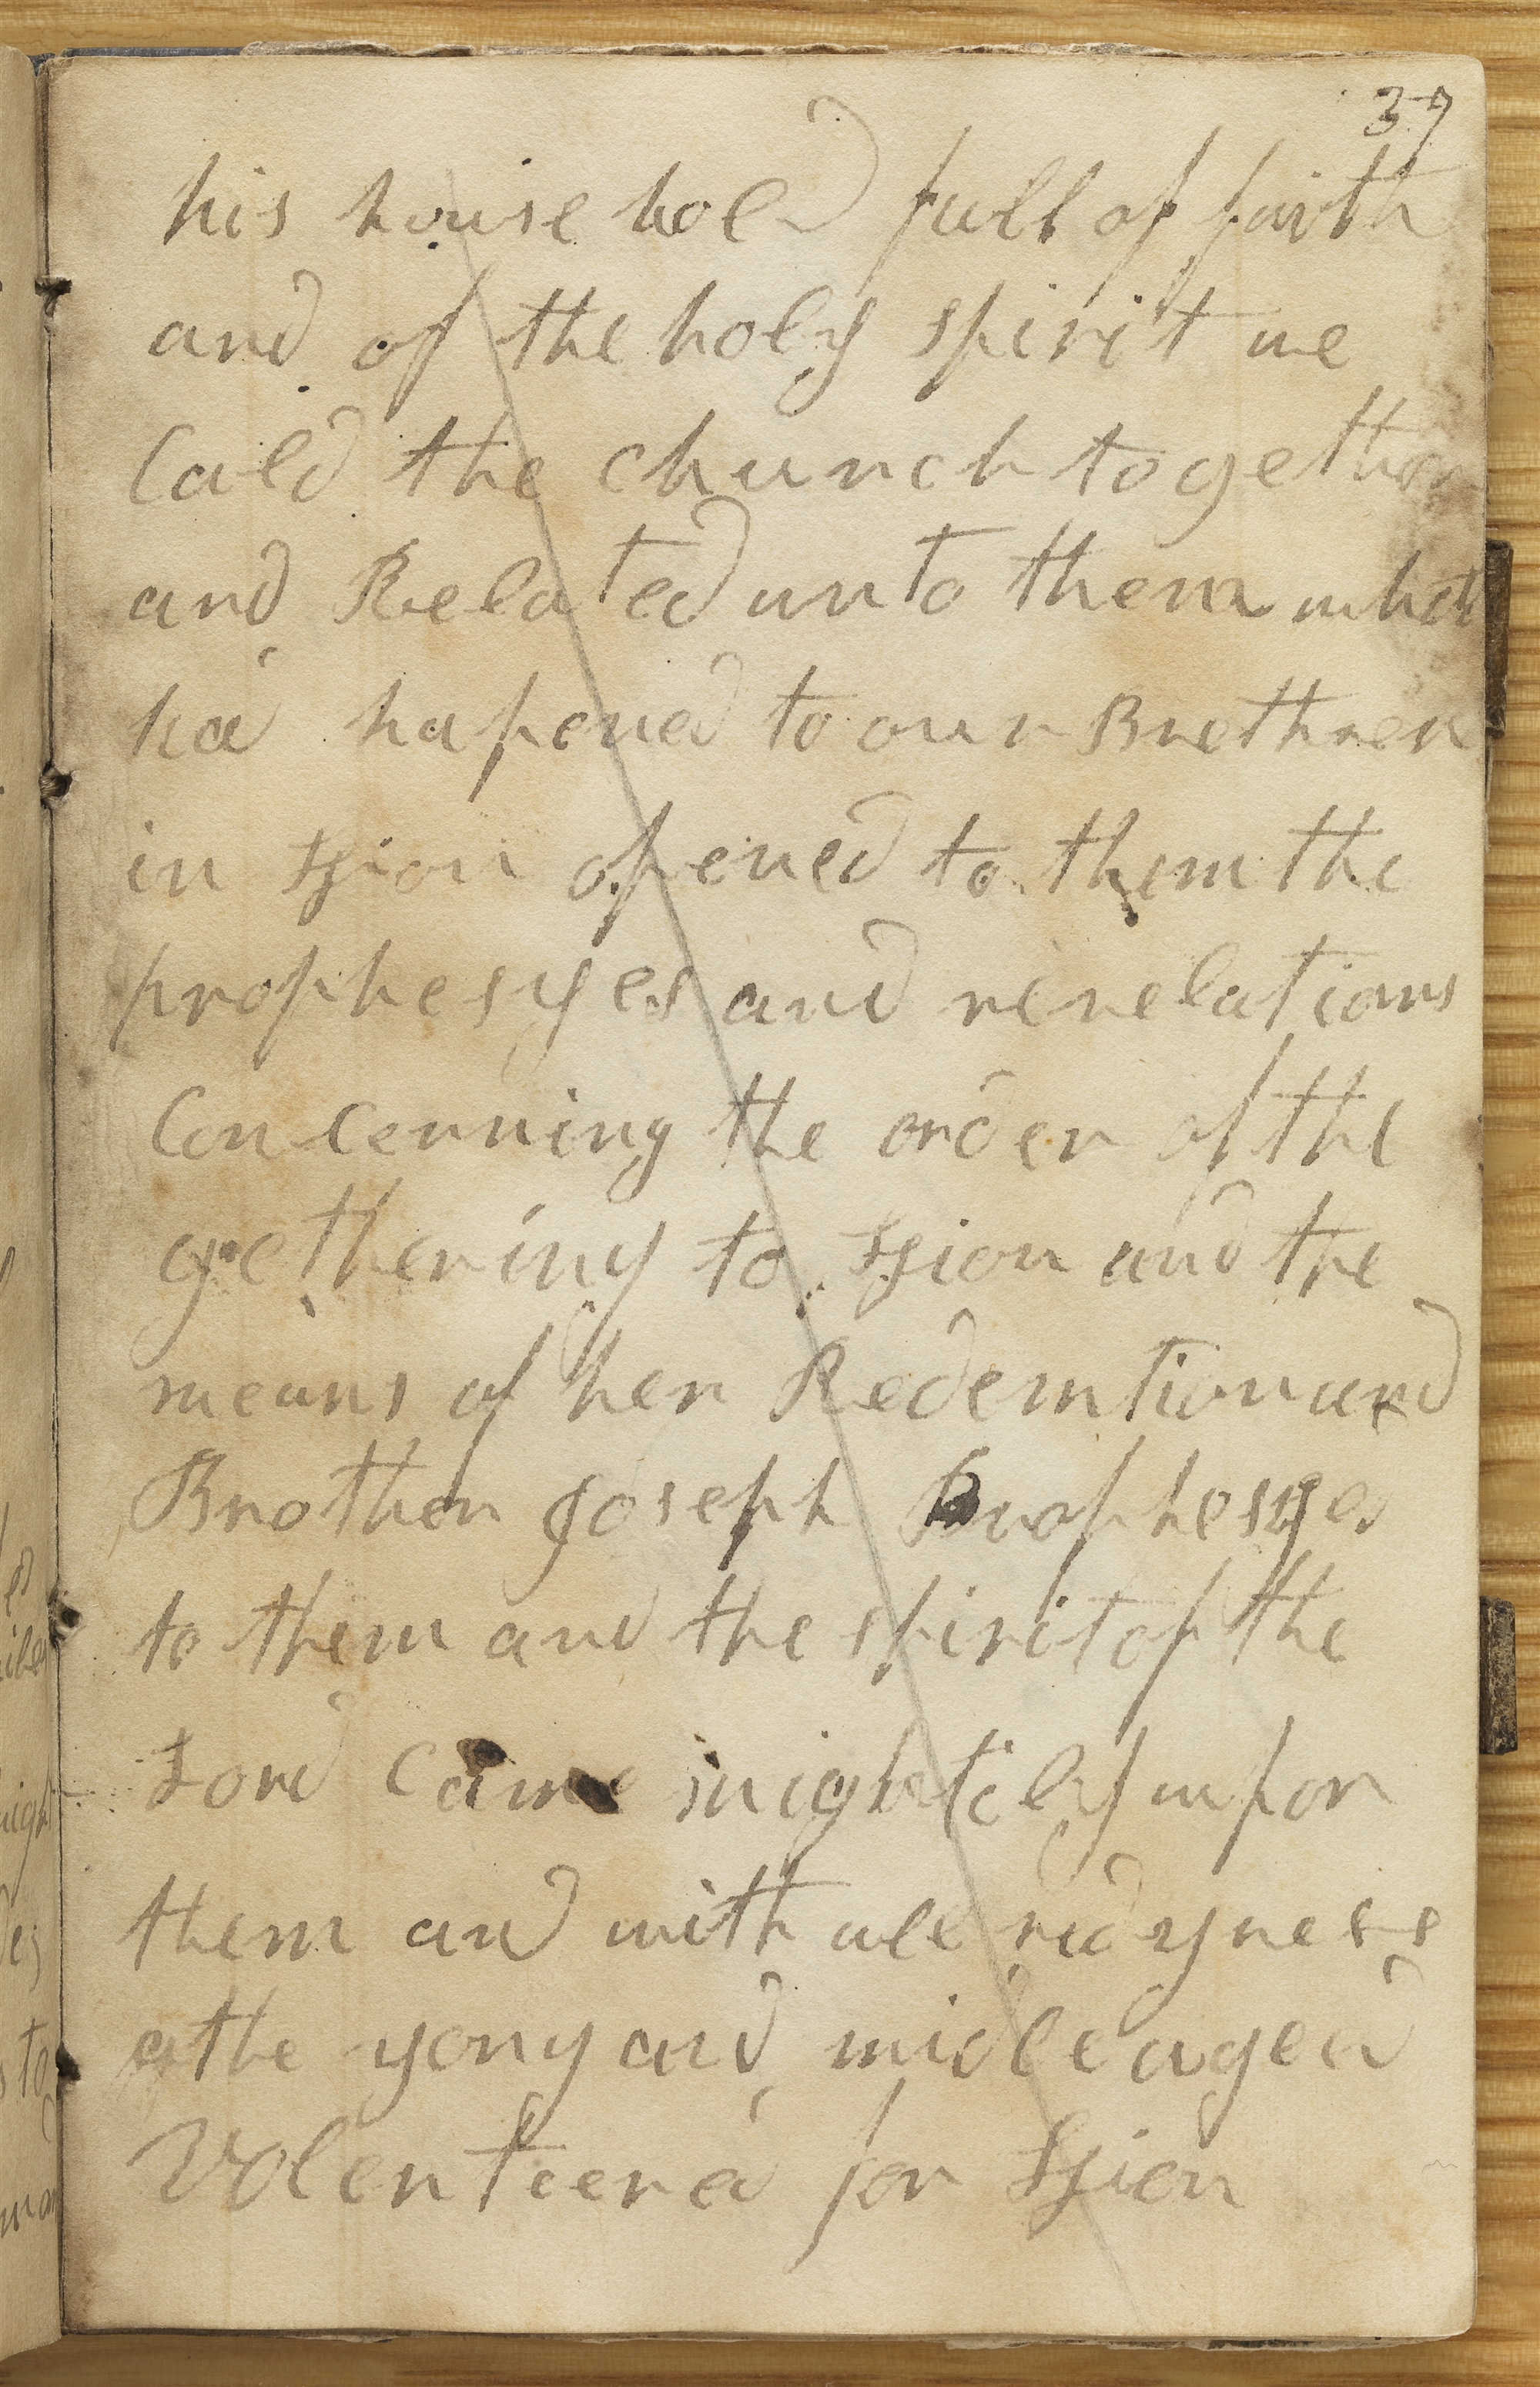 37
his house hold full of faith
and of the holy spirit we
Cald the church together
and Related unto them what
had hapened to our Brethren
in Zion opened to them the
prophesyes and revelations
Concerning the order of the
gethering to Zion and the
means of her Redemtion and
Brother Joseph Prophesyed
to them and the spirit of the
Lord came mightily upon
them and with all redyness
the yong and midleaged
Volenteered for Zion